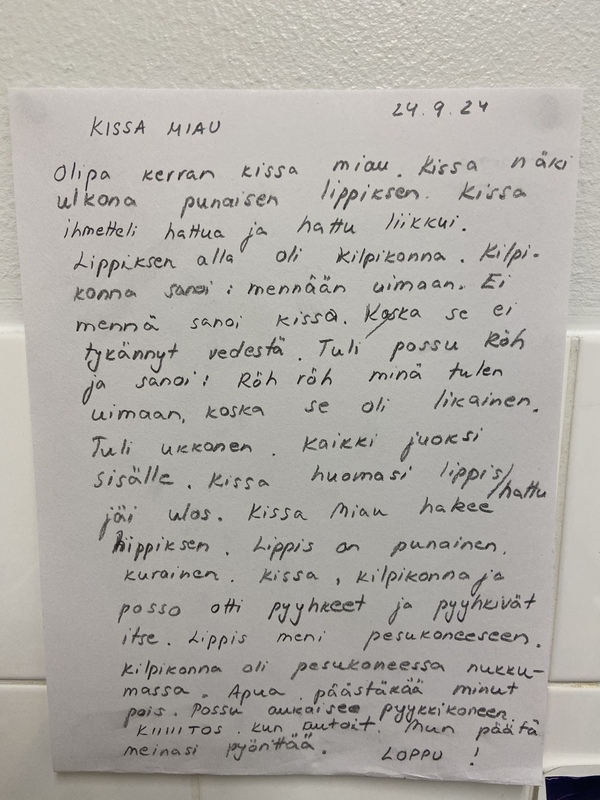 24.9.24
KISSA MIAU
Olipa kerran kissa miau. Kissa näki
ulkona punaisen lippiksen. Kissa
ihmetteli hattua ja hattu liikkui.
Lippiksen alla oli kilpikonna. Kilpi-
konna sanoi: mennään uimaan. Ei
mennä sanoi kissa. Koska se ei
tykännyt vedestä. Tuli possu Röh
ja sanoi: Röh röh minä tulen
uimaan, koska se oli likainen.
Tuli ukkonen. Kaikki juoksi
sisälle. Kissa huomasi lippis/hattu
jäi ulos. Kissa Miau hakee
lippiksen. Lippis on punainen,
kurainen. Kissa, kilpikonna ja
posso otti pyyhkeet ja pyyhkivät
itse. Lippis meni pesukoneeseen.
Kilpikonna oli pesukoneessa nukku-
massa. Apua päästäkää minut
pois. Possu aukaisee pyykkikoneen.
KIIIIITOS. kun autoit. Mun päätä
meinasi pyörittää. LOPPU !